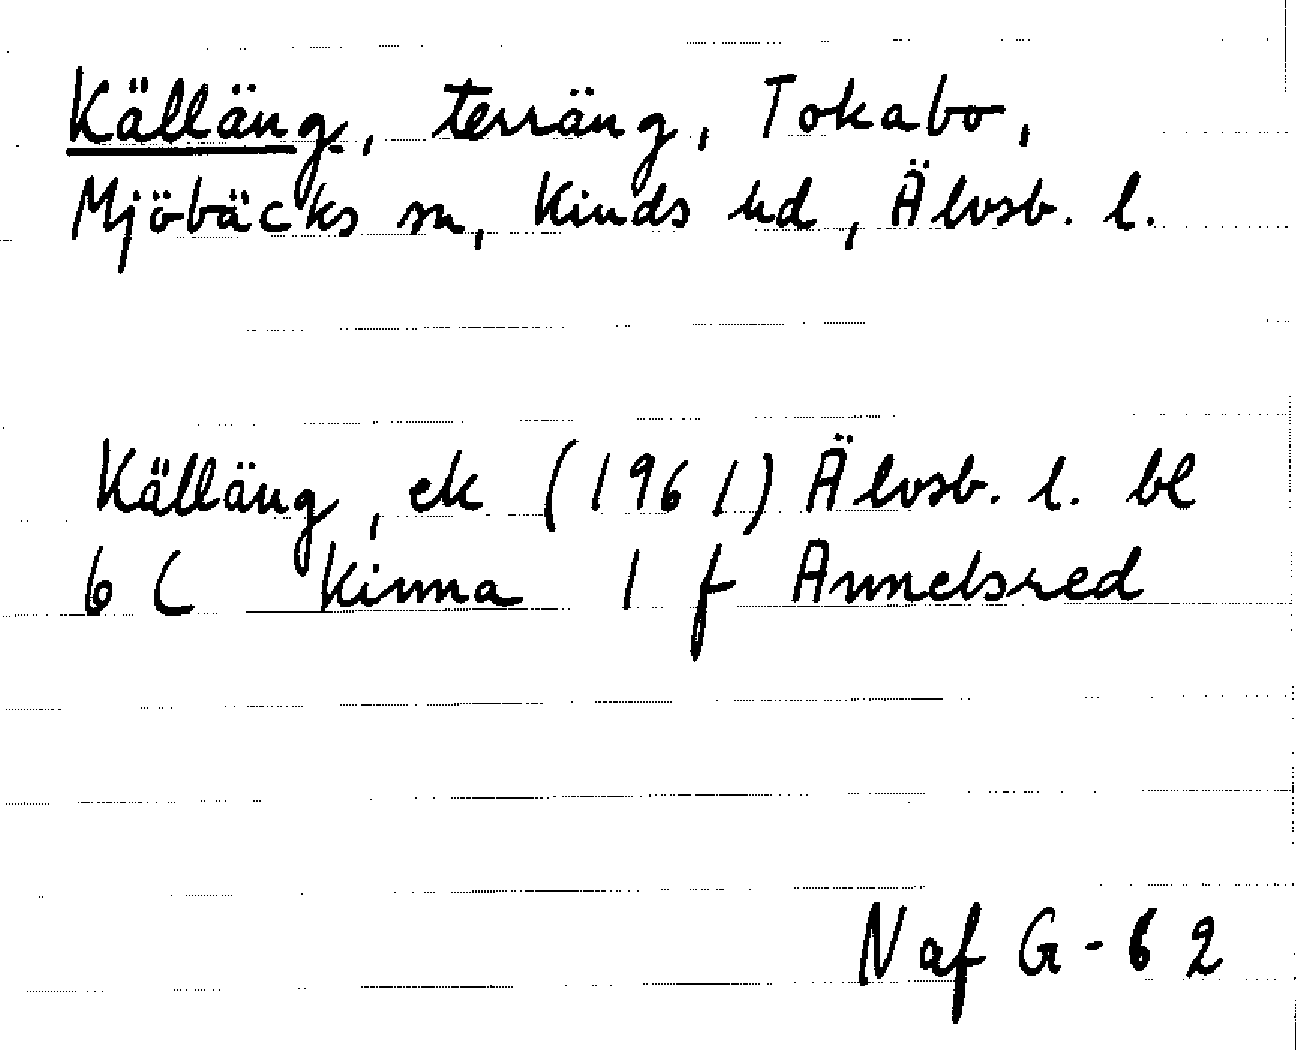 Källäng, terräng, Tokabo,
Mjöbäcks sn, Kinds hd, Älvsb. l.
Källäng, ek (1961) Älvsb. l. bl
6 C Kinna 1 f Annelsred
Naf G-62